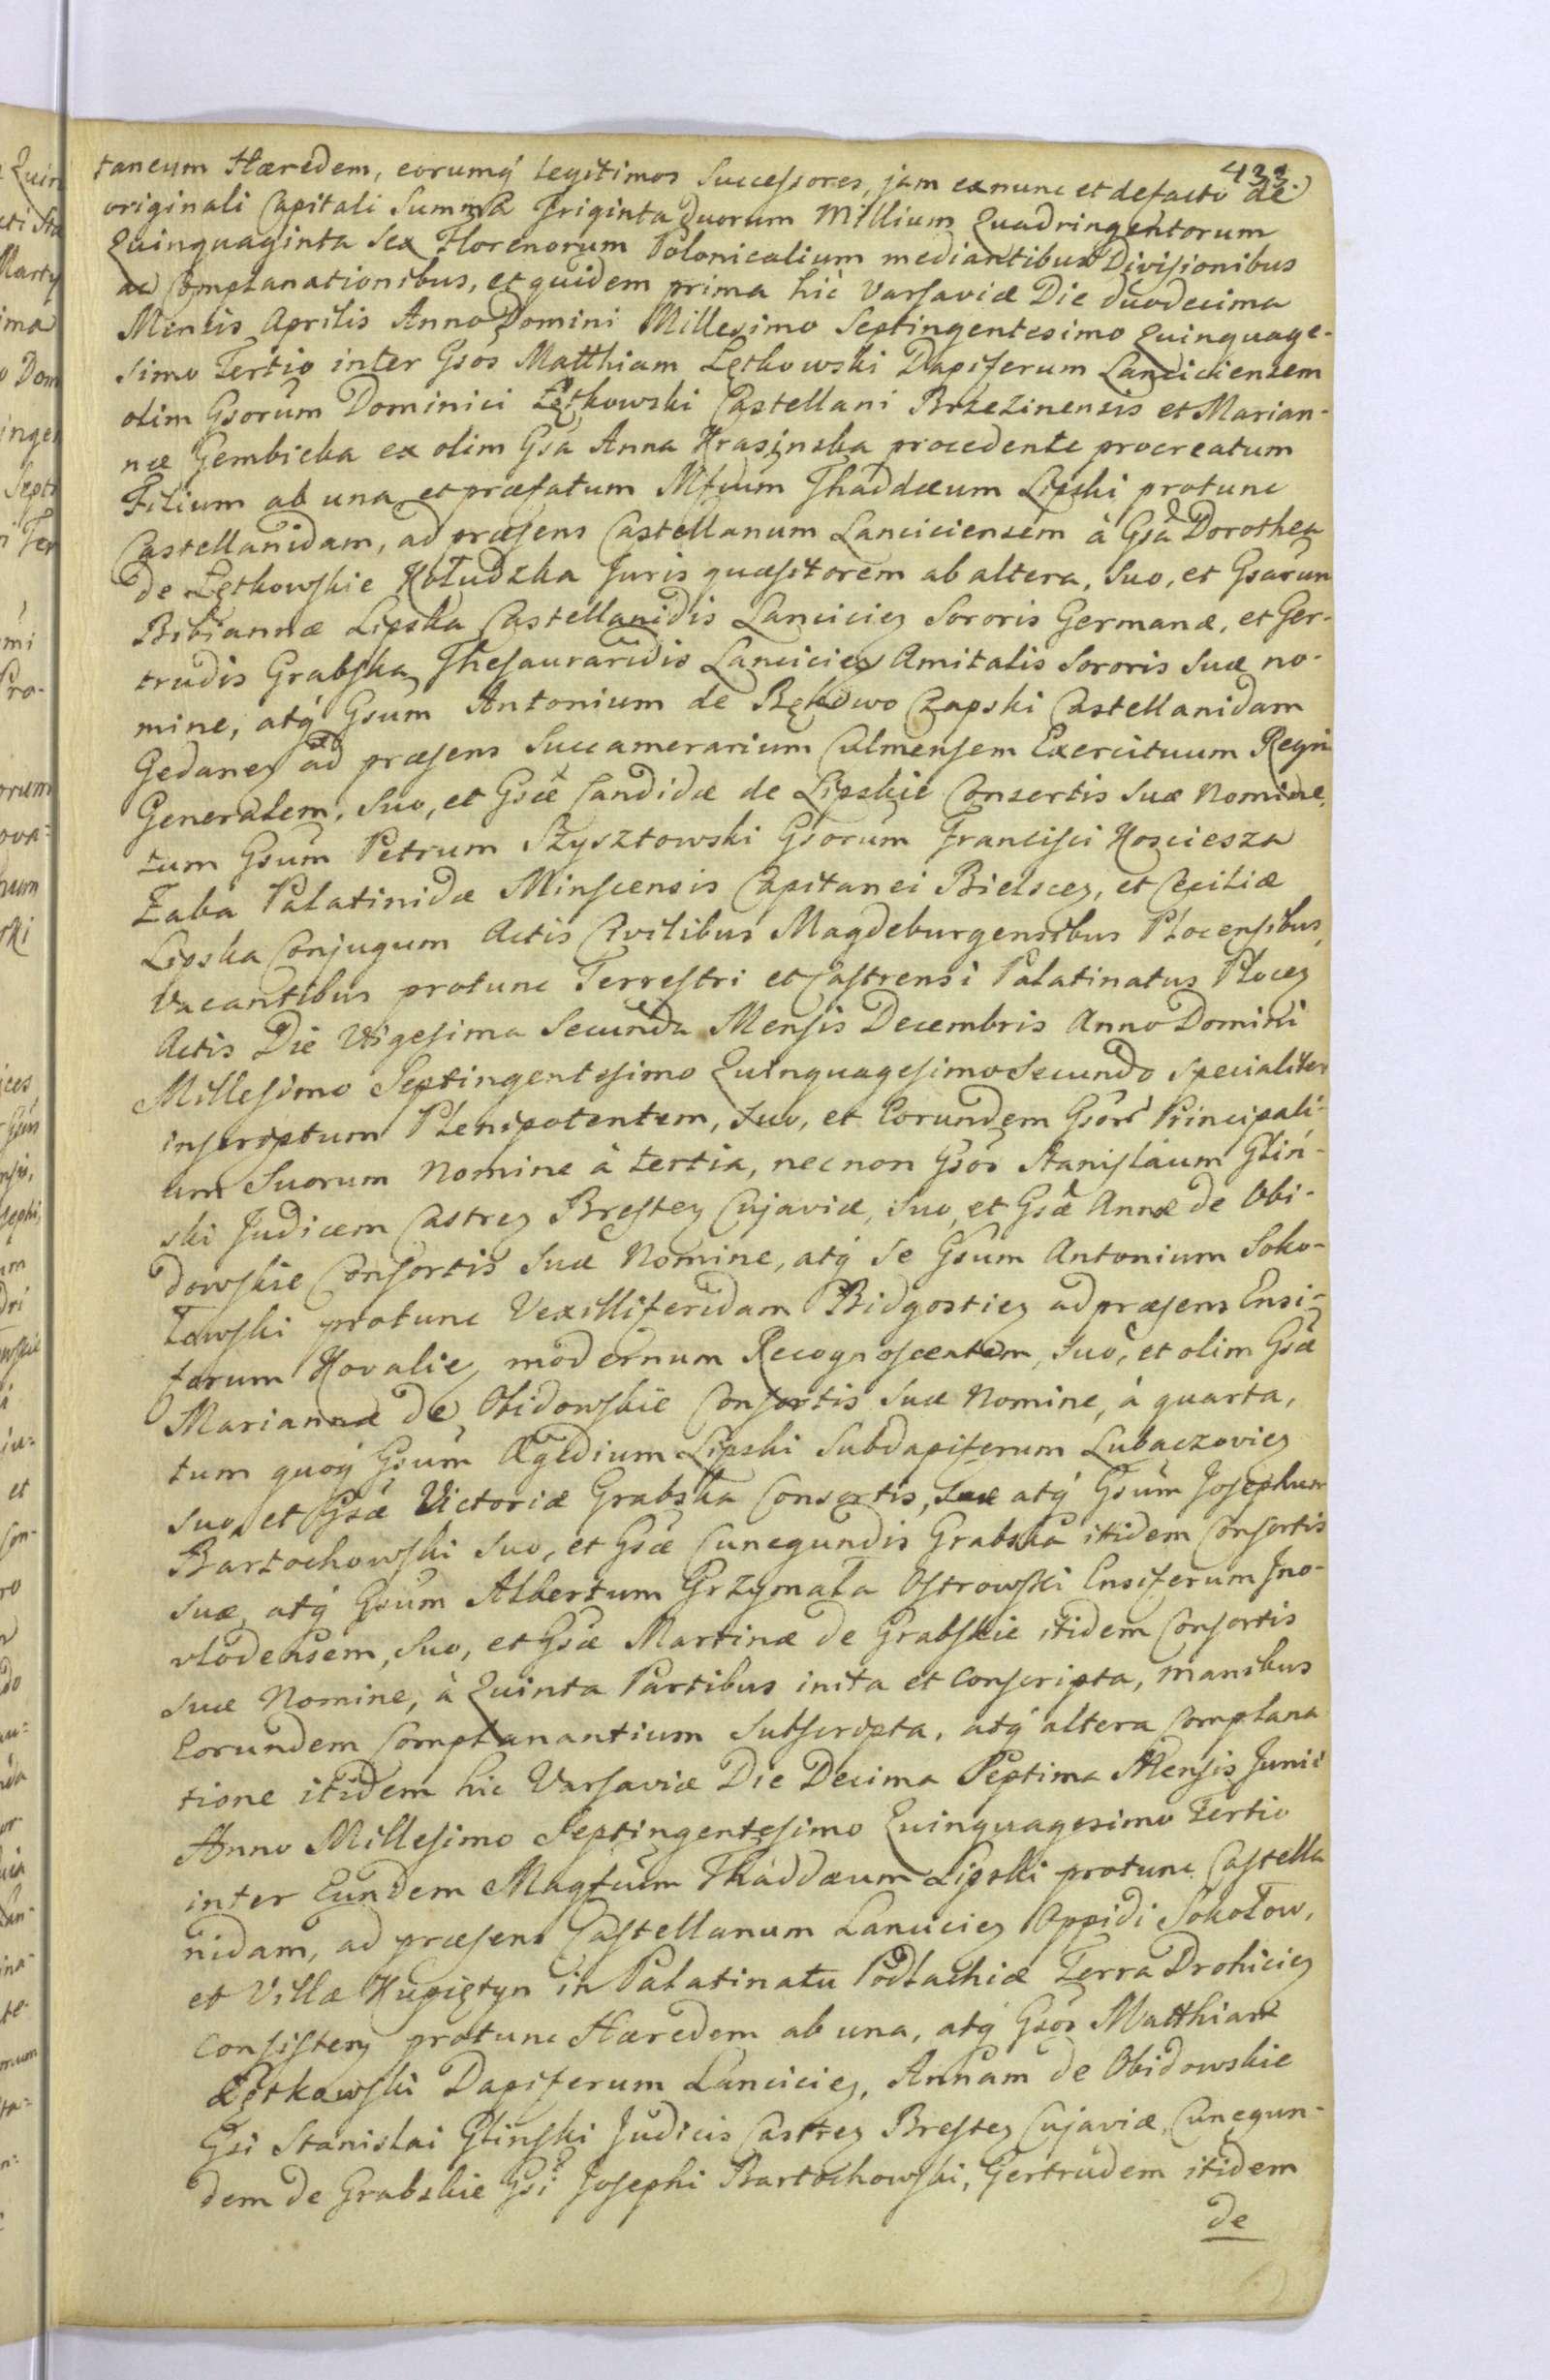 433.
taneum Hæredem, eorumq́ Legitimos Successores, jam exnunc et defacto de
originali Capitali Summa Triginta Duorum Millium Quadringentorum
Quinquaginta Sex Florenorum Polonicalium mediantibus Divisionibus
ac Complanationibus, et quidem prima hic Varsaviæ Die duodecima
Mensis Aprilis Anno Domini Millesimo Septingentesimo Quinquage-
simo Tertio inter Gsos Matthiam Łętkowski Dapiferum Lanciciensem
olim Gsorum Dominici Łętkowski Castellani Brzezinensis et Marian-
næ Gembicka ex olim Gsa Anna Krasinska procedente procreatum
Filium ab una et præfatum Mfcum Thaddæum Lipski protunc
Castellanidam, ad præsens Castellanum Lanciciensem à Gsa Dorothea
de Łętkowskie Kołudzka Juris quæsitorem ab altera, Suo, et Gsarum
Bibiannæ Lipska Castellanidis Lanciciey Sororis Germanæ, et Ger-
trudis Grabska Thesauraridis Lanciciey Amitalis Sororis Suæ no-
mine, atq́ Gsum Antonium de Bękowo Czapski Castellanidam
Gedaney ad præsens Succamerarium Culmensem Exercituum Regni
Generalem, Suo, et Gsæ Candidæ de Lipskie Consortis Suæ Nomine,
tum Gsum Petrum Szysztowski Gsorum Francisci Kosciesza
Żaba Palatinidæ Minscensis Capitanei Bielscey, et Ceciliæ
Lipska Conjugum Actis Civilibus Magdeburgensibus Plocensibus,
Vacantibus protunc Terrestri et Castrensi Palatinatus Plocey
Actis Die Vigesima Secunda Mensis Decembris Anno Domini
Millesimo Septingentesimo Quinquagesimo Secundo Specialiter
inscriptum Plenipotentem, Suo, et Eorundem Gsor Principali-
um Suorum Nomine à tertia, necnon Gsos Stanislaum Glin-
ski Judicem Castrey Brestey Cujaviæ, Suo, et Gsæ Annæ de Obi-
dowskie Consortis Suæ Nomine, atq́ se Gsum Antonium Soko-
łowski protunc Vexilliferidam Bidgostiey ad præsens Ensi-
ferum Kovalie, modernum Recognoscentem, Suo, et olim Gsæ
Mariannæ de Obidowskie Consortis Suæ Nomine, à quarta,
tum quoq́ Gsum Ægidium Lipski Subdapiferum Lubaczoviey
Suo, et Gsæ Victoriæ Grabska Consortis, Suæ atq́ Gsum Josephum
Bartochowski Suo, et Gsæ Cunegundis Grabska itidem Consortis
Suæ, atq́ Gsum Albertum Grzymała Ostrowski Ensiferum Jno-
vlodensem, Suo, et Gsæ Martinæ de Grabskie itidem Consortis
Suæ Nomine, à Quinta Partibus inita et Conscripta, manibus
Eorundem Complanantium Subscripta, atq́ altera Complana
tione itidem hic Varsaviæ Die Decima Septima Mensis Junii
Anno Millesimo Septingentesimo Quinquagesimo Tertio
inter Eundem Magfcum Thaddæum Lipski protunc Castella
nidam, ad præsens Castellanum Lanciciey Oppidi Sokołow,
et Villæ Kupiętyn in Palatinatu Podlachiæ Terra Drohiciey
Consistey protunc Hæredem ab una, atq́ Gsos Matthiam
Łętkowski Dapiferum Lanciciey, Annam de Obidowskie
Gsi Stanislai Glinski Judicis Castrey Brestey Cujaviæ, Cunegun-
dem de Grabskie Gsi Josephi Bartochowski, Gertrudem itidem
de